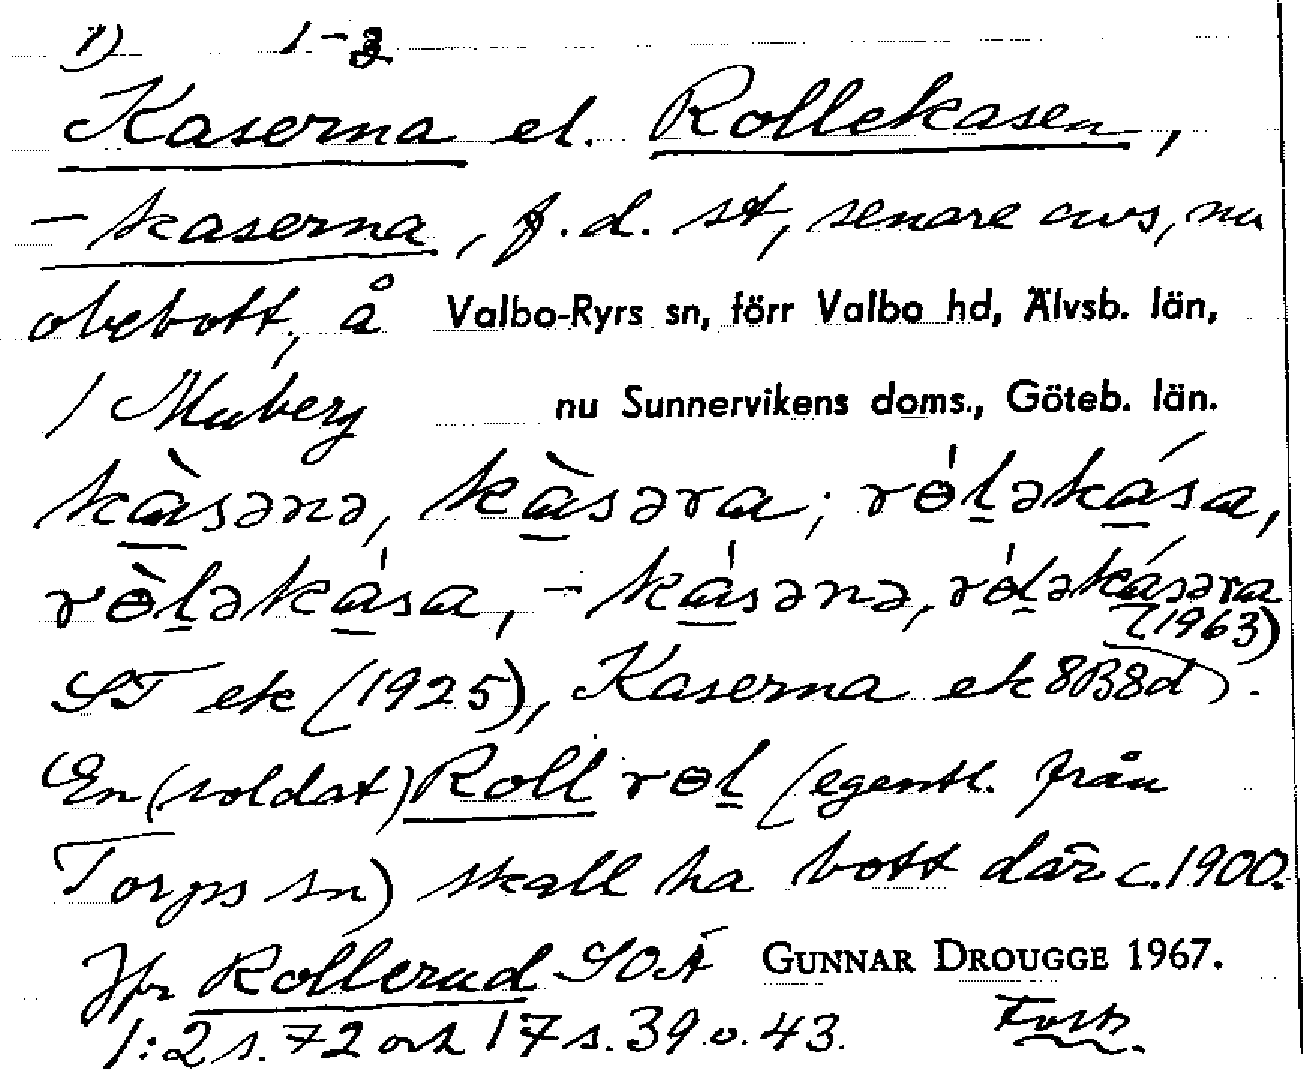 1) 1-3
Kaserna el. Rollekasen,
-kaserna, f.d. st, senare avs, nu
obebott, å Valbo-Ryrs sn, förr Valbo hd, Älvsb. län,
/ Muberg nu Sunnervikens doms., Göteb. län.
kàsənə, kàsəra; rɵ́ḻəkása,
rɵ̀ḻəkása, -kásənə, rɵ́ḻəkásəra
(1963)
ST ek (1925), Kaserna ek 8B8d).
En (soldat) Roll rɵḻ (egentl. från
Torps sn) skall ha bott där c. 1900.
Jfr Rollerud SOÄ GUNNAR DROUGGE 1967.
1:2 s. 72 och 17 s. 39 o. 43. Forts.